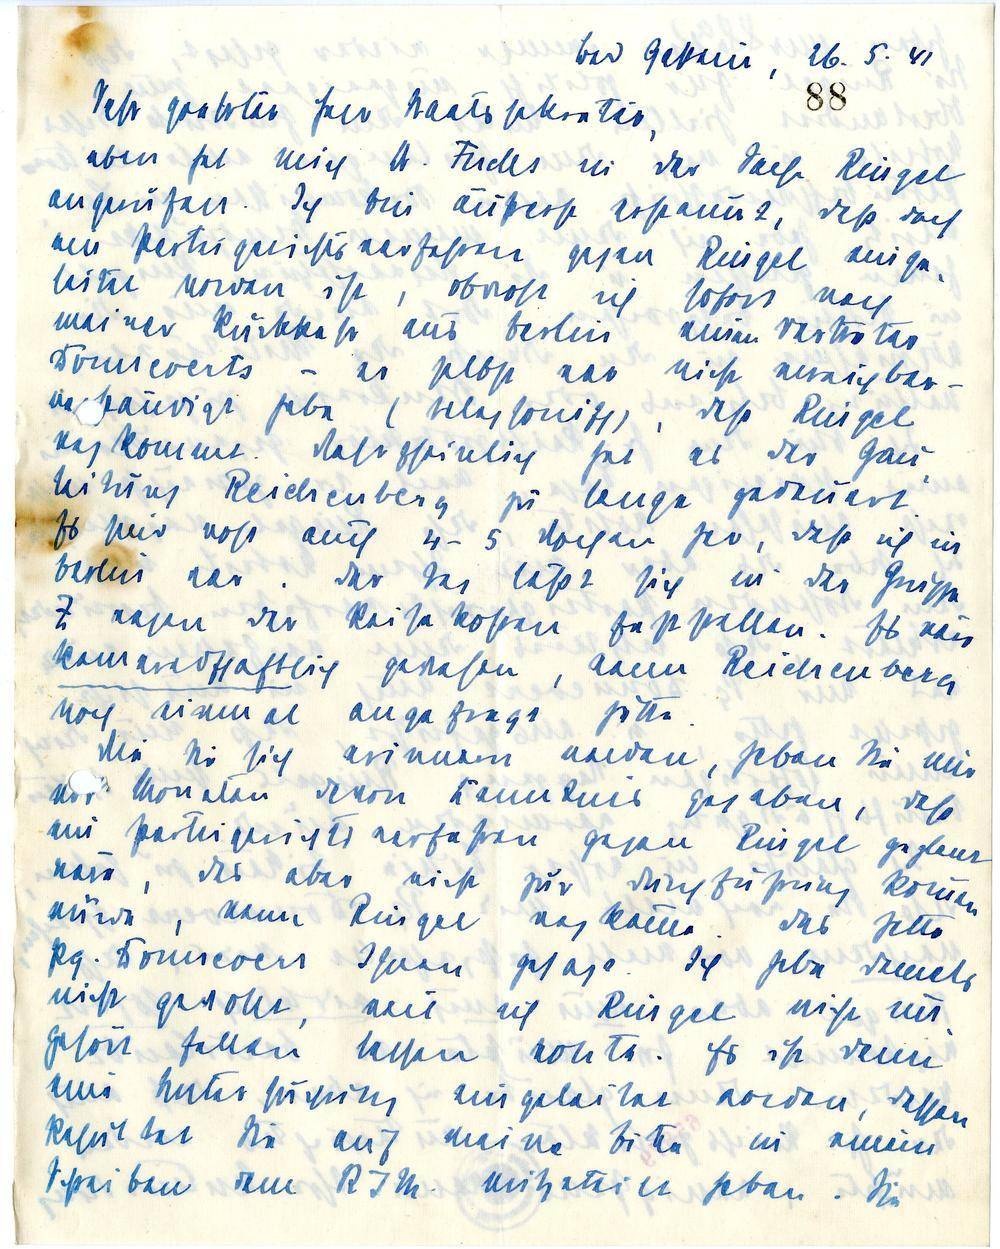 Bad Gastein, 26. 5. 41
88
Sehr geehrter Herr Staatssekretär,
eben hat mich St. Fuchs in der Sache Ringel
angerufen. Ich bin äußerst erstaunt, daß doch
ein Parteigerichtsverfahren gegen Ringel einge-
leitet worden ist, obwohl ich sofort nach
meiner Rückkehr aus Berlin einen Vertreter
Donnevert's – er selbst war nicht erreichbar –
verständigt habe (telephonisch), daß Ringel
wegkommt. Wahrscheinlich hat es der Gau-
leitung Reichenberg zu lange gedauert.
Es sind wohl auch 4–5 Wochen her, daß ich in
Berlin war. Aber das läßt sich in der Gruppe
Z wegen der Reisekosten feststellen. Es wäre
kameradschaftlich gewesen, wenn Reichenberg
noch einmal angefragt hätte.
Wie Sie sich erinnern werden, haben Sie mir
vor Monaten davon Kenntnis gegeben, daß
ein Parteigerichtsverfahren gegen Ringel geplant
wäre, das aber nicht zur Durchführung kommen
würde, wenn Ringel wegkäme. Das hätte
Pg. Donnevert Ihnen gesagt. Ich habe damals
nicht gewollt, weil ich Ringel nicht un-
gehört fallen lassen wollte. Es ist dann
eine Untersuchung eingeleitet worden, dessen
Resultat Sie auf meine Bitte in einem
Schreiben dem RJM. mitgeteilt haben. Sie